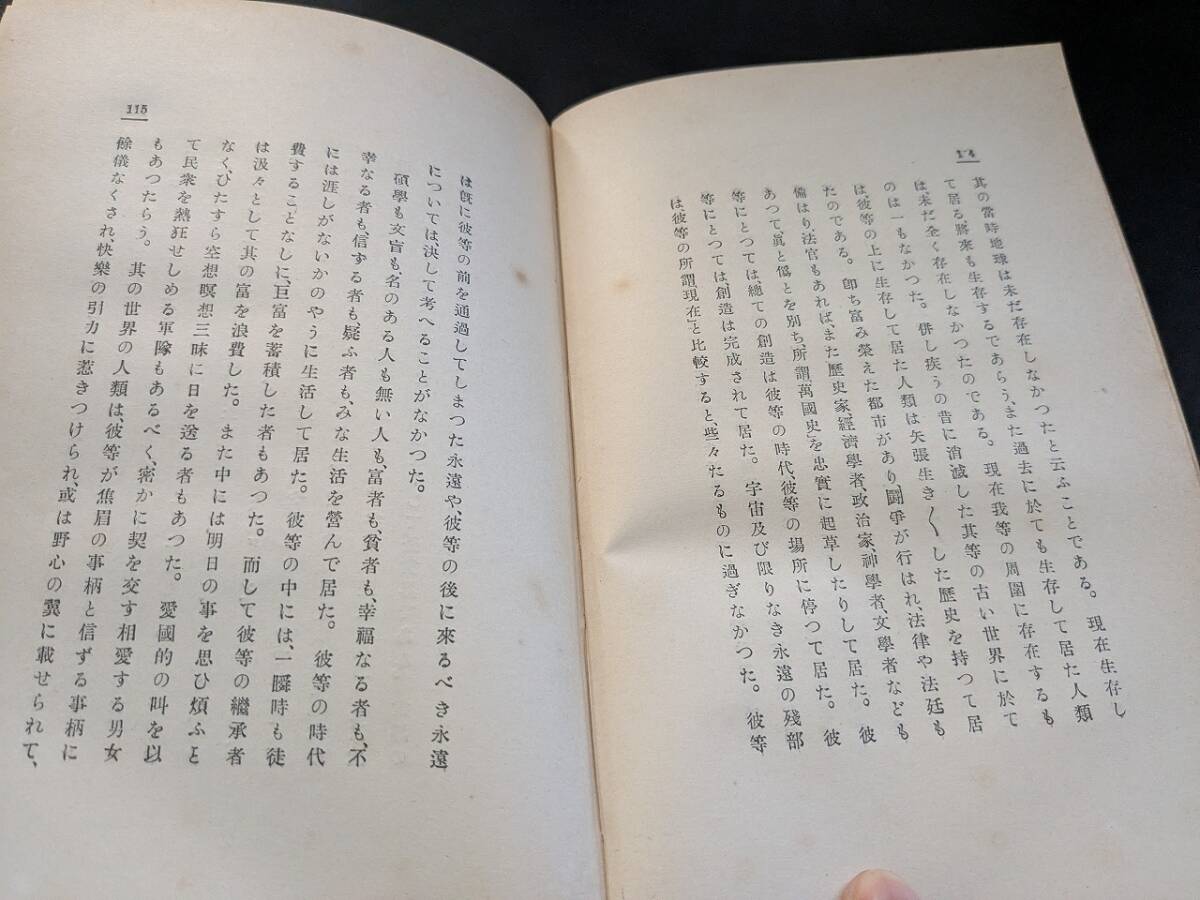 114
其の當時地球は未だ存在しなかつたと云ふことである。現在生存し
て居る、將來も生存するであらう、また過去に於ても生存して居た人類
は、未だ全く存在しなかつたのである。現在我等の周圍に存在するも
のは一もなかつた。併し疾うの昔に消滅した其等の古い世界に於て
は、彼等の上に生存して居た人類は矢張生き〱した歷史を持つて居
たのである。卽ち富み榮えた都市があり、鬪爭が行はれ、法律や法廷も
備はり、法官もあれば、また歷史家、經濟學者、政治家、神學者、文學者なども
あつて、眞と僞とを別ち、所謂「萬國史」を忠實に起草したりして居た。彼
等にとつては、總ての創造は彼等の時代、彼等の場所に停つて居た。彼
等にとつては、創造は完成されて居た。宇宙及び限りなき永遠の殘部
は、彼等の所謂「現在」と比較すると、些々たるものに過ぎなかつた。彼等
115
は旣に彼等の前を通過してしまつた永遠や、彼等の後に來るべき永遠
については、決して考へることがなかつた。
碩學も文盲も、名のある人も無い人も、富者も、貧者も、幸福なる者も、不
幸なる者も、信ずる者も、疑ふ者も、みな生活を營んで居た。彼等の時代
には涯しがないかのやうに生活して居た。彼等の中には、一瞬時も徒
費することなしに、巨富を蓄積した者もあつた。而して彼等の繼承者
は汲々として其の富を浪費した。また中には明日の事を思ひ煩ふと
なく、ひたすら空想瞑想三昧に日を送る者もあつた。愛國的の叫を以
て民衆を熱狂せしめる軍隊もあるべく、密かに契を交す相愛する男女
もあつたらう。其の世界の人類は、彼等が焦眉の事柄と信ずる事柄に
餘儀なくされ、快樂の引力に惹きつけられ、或は野心の翼に載せられて、